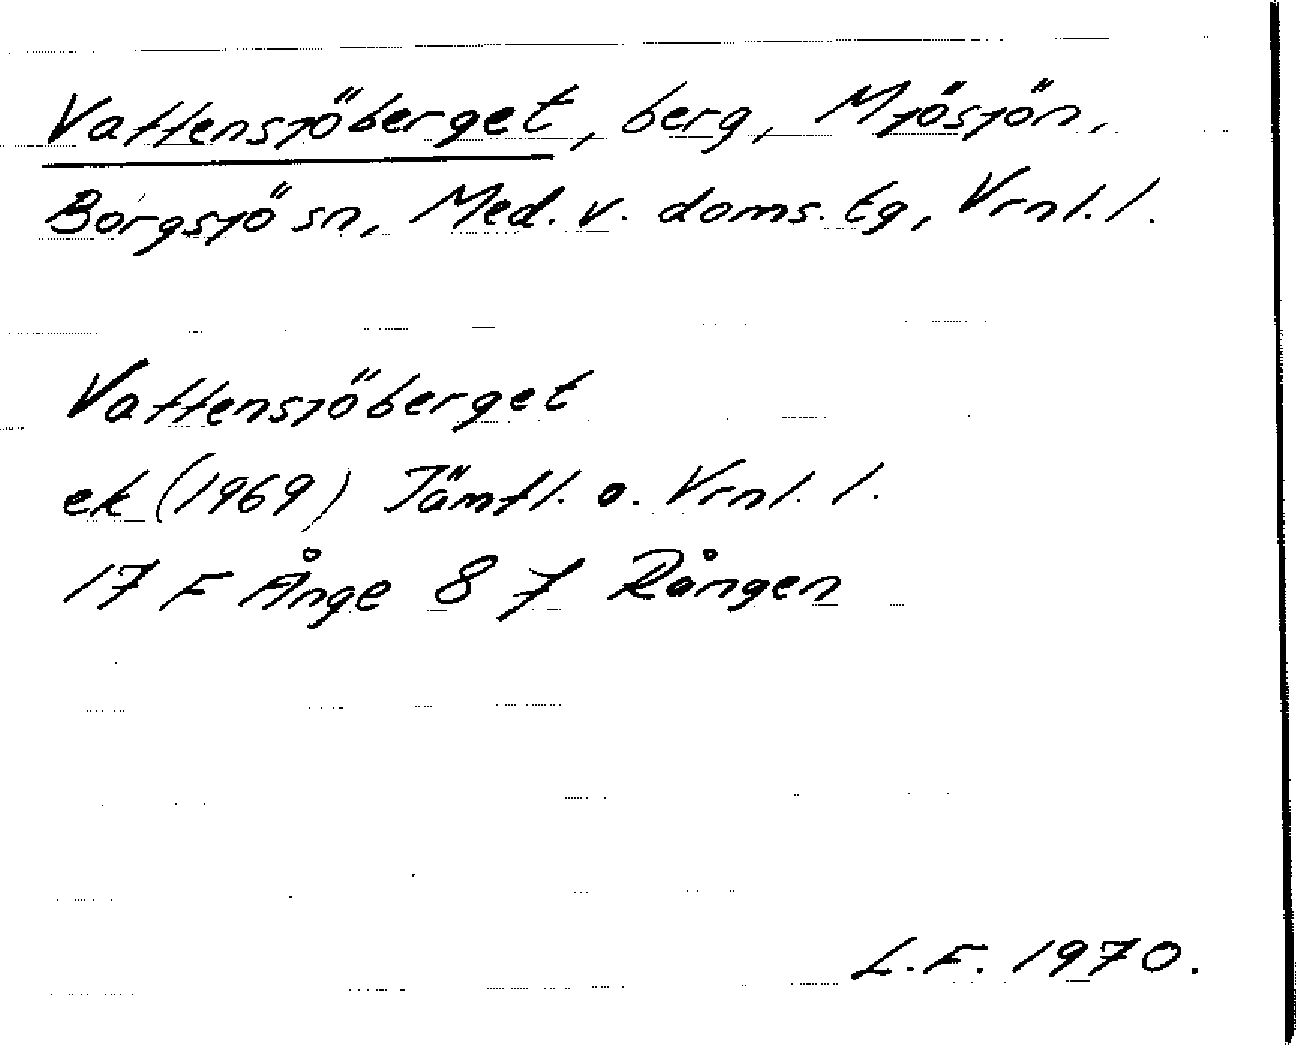 Vattensjöberget, berg, Mjösjön,
Borgsjö sn, Med. v. doms. tg, Vrnl. l.
Vattensjöberget
ek (1969) Jämtl. o. Vrnl. l.
17 F Ånge 8 j Rången
L.F. 1970.